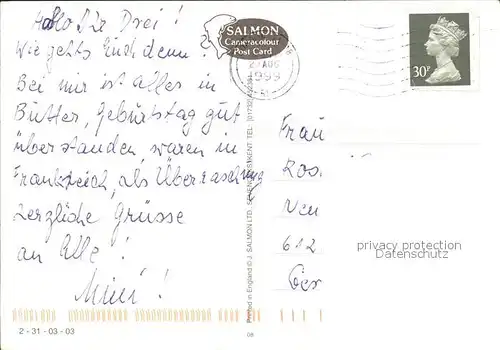 Hallo Ihr Drei!
Wie gehts Euch denn?
Bei mir ist alles in
Butter, Geburtstag gut
überstanden, waren in
Frankreich, als Überraschung
herzliche Grüsse
an Alle!
Mini!
2 - 31 - 03 - 03
SALMON
Cameracolour
Post Card
AUG
1999
30P
Printed in England © J. SALMON LTD., SEVENOAKS, KENT. TEL.
08
Frau
Ros.
Neu
612
Ger
privacy protection
Datenschutz